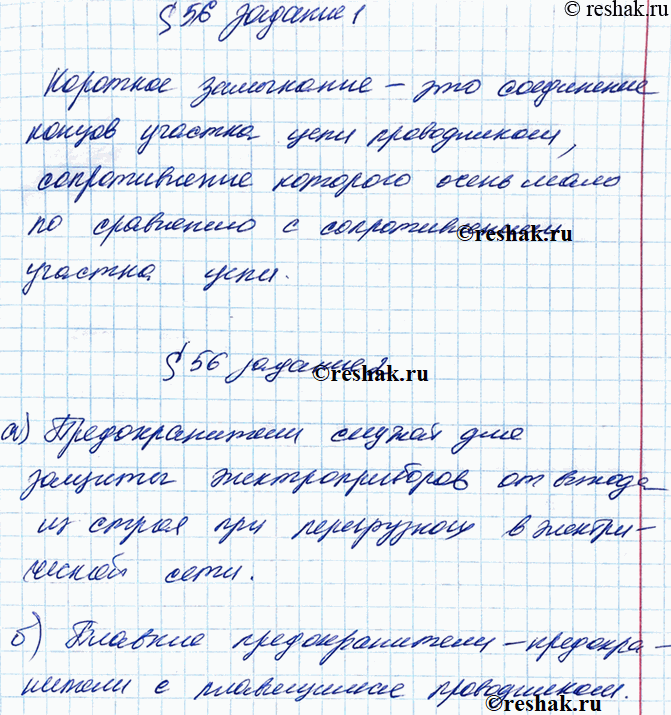 © reshak.ru
§ 56 Задание 1
Короткое замыкание – это соединение
концов участка цепи проводником,
сопротивление которого очень мало
по сравнению с сопротивлением
© reshak.ru
участка цепи.
§ 56 задание 2
© reshak.ru
а) Предохранители служат для
защиты электроприборов от выхода
из строя при перегрузках в электри-
ческой сети.
© reshak.ru
б) Плавкие предохранители – предохра-
нители с плавящимся проводником.